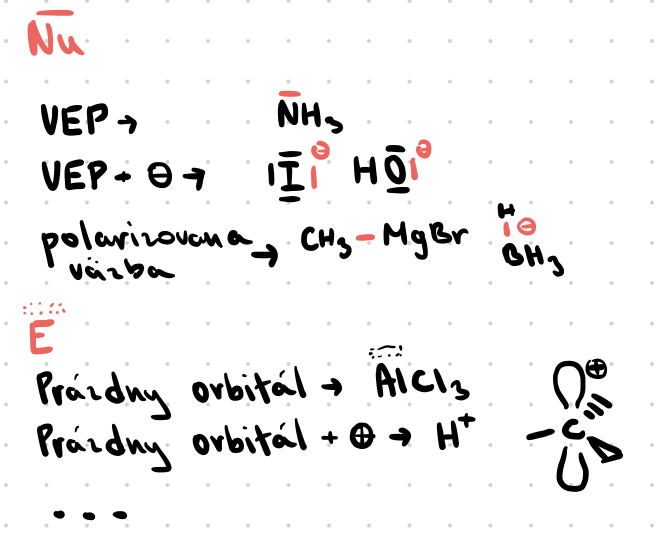 Nu
VEP → NH₃
VEP + ⊖ → I⊖ HO⊖
polarizovana → CH₃ – MgBr H ⊖
väzba BH₃
E
Prázdny orbitál → AlCl₃ ⊕
Prázdny orbitál + ⊕ → H⁺ C
...